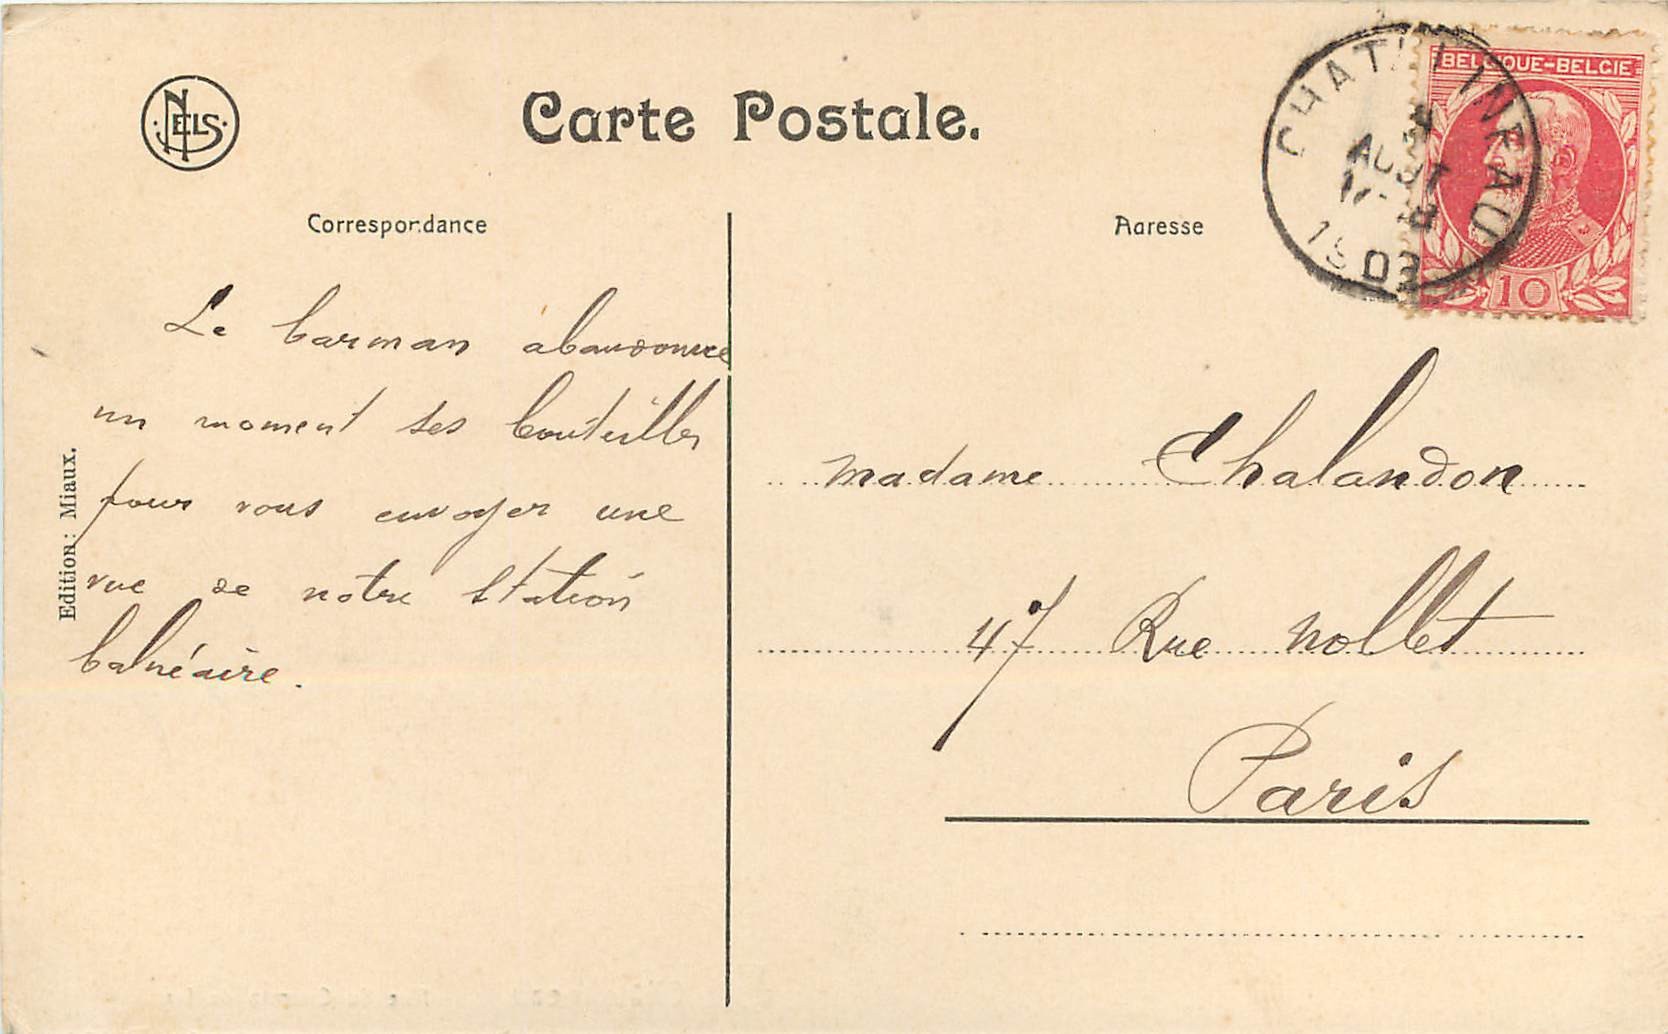 NELS
Carte Postale.
Correspondance
Adresse
CHATELINEAU
AOUT
BELGIQUE-BELGIE
10
Le barman abandonne
un moment ses bouteilles
pour vous envoyer une
vue de notre station
balnéaire.
Edition: Miaux.
madame Chalandon
47 Rue Nollet
Paris